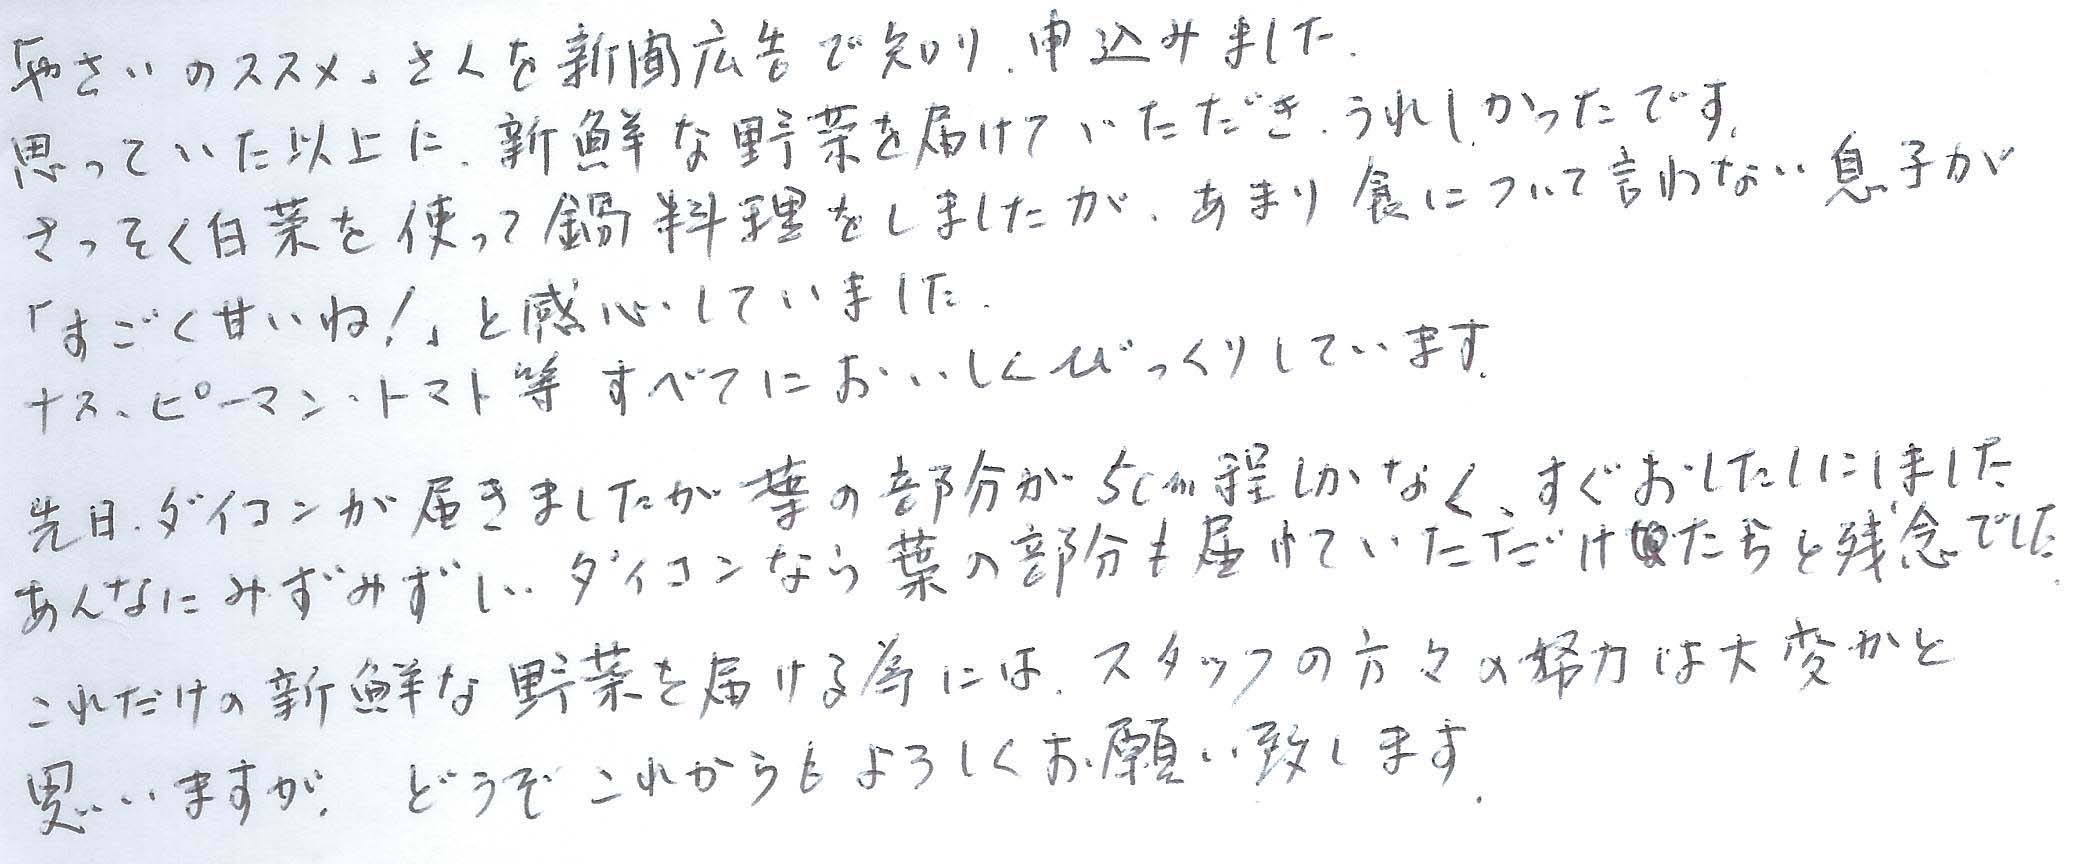 「やさいのススメ」さんを新聞広告で知り、申込みました。
思っていた以上に、新鮮な野菜を届けていただき、うれしかったです。
さっそく白菜を使って鍋料理をしましたが、あまり食について言わない息子が
「すごく甘いね！」と感心していました。
ナス、ピーマン・トマト等すべてにおいしくびっくりしています。
先日、ダイコンが届きましたが葉の部分が5cm程しかなく、すぐおしたしにしました
あんなにみずみずしいダイコンなら葉の部分も届けていただけたらと残念でした。
これだけの新鮮な野菜を届ける為には、スタッフの方々の努力は大変かと
思いますが、どうぞこれからもよろしくお願い致します。